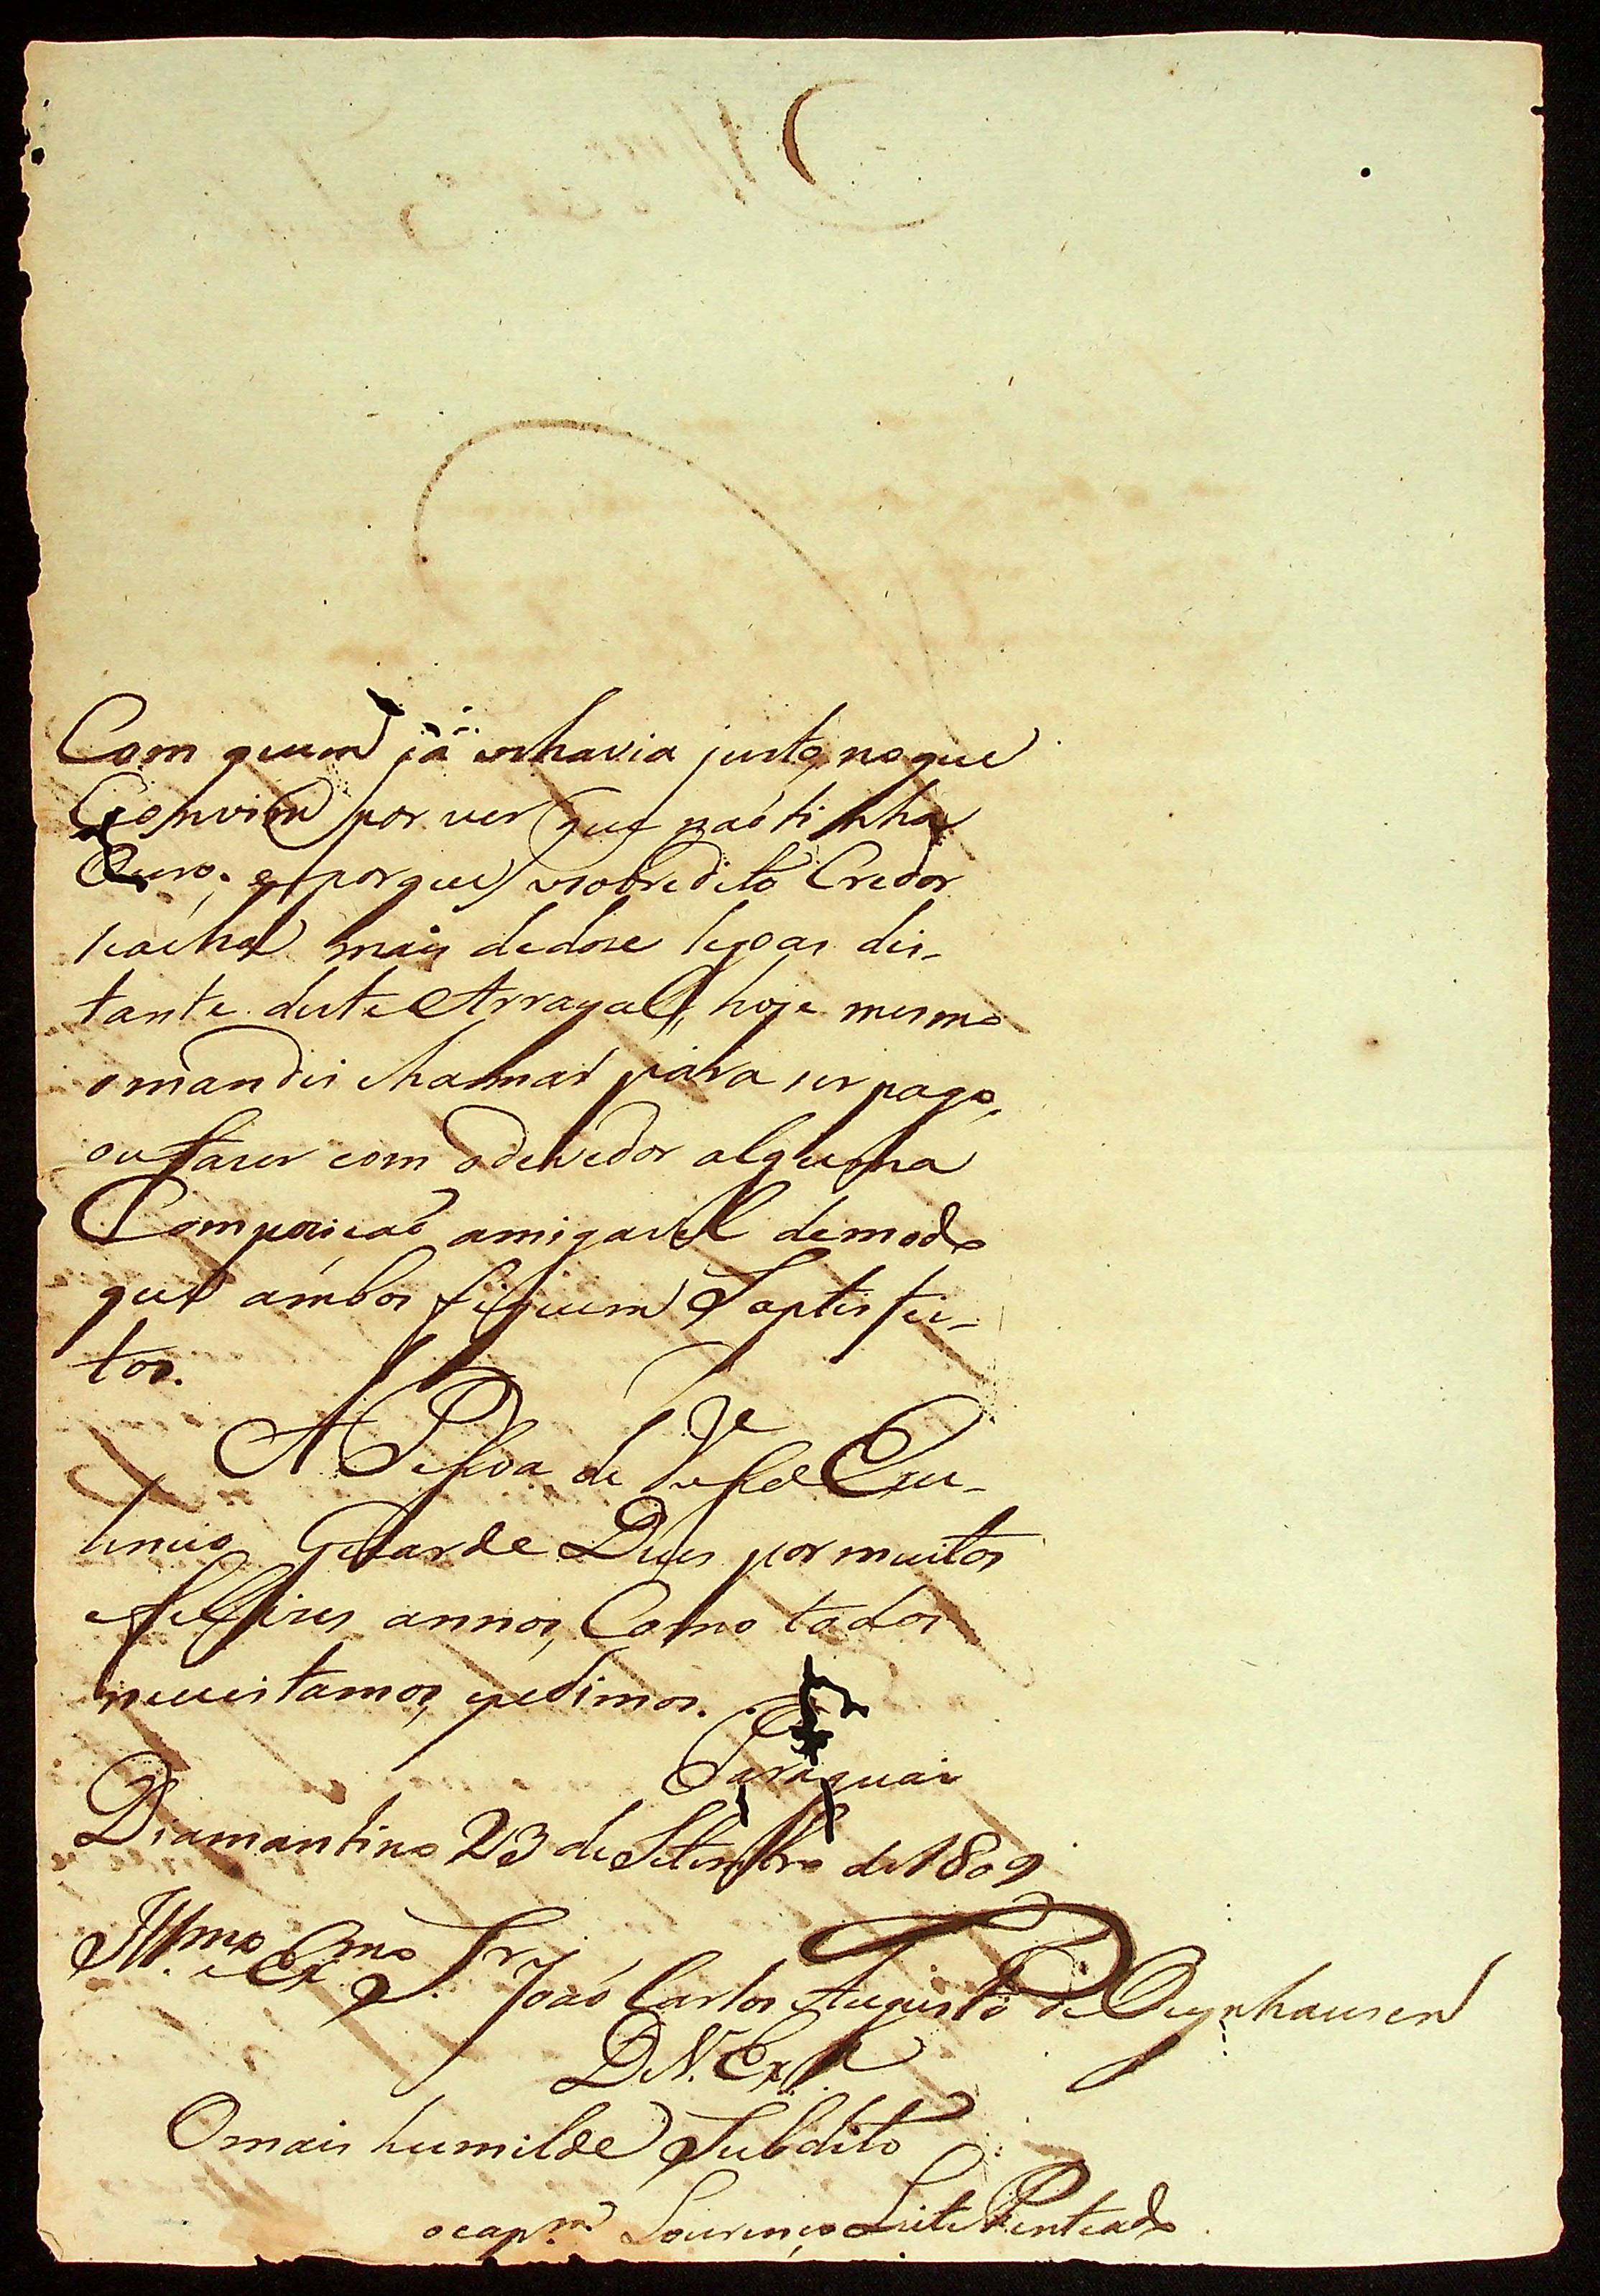 Com quem já havia justo, no que
Convim por ver que naõ tinha
Ouro; e porque o sobredito Credor
se acha mais de dose legoas dis-
tante deste Arrayal, hoje mesmo
o mandei chamar para ser pago,
ou faser com o devedor alguma
Composiçaõ amigavel de modo
que ambos fiquem Saptisfei-
tos.
A Pessoa de Vossa Exce-
lencia Guarde Deus por muitos
e fellises annos, Como todos
necessitamos, e pedimos.
Paraguai
Diamantino 23 de Setembro de 1809
Illmo. e Exmo. Sr. Joaõ Carlos Augusto de Oeynhausen
De V. Exa.
O mais humilde Subdito
o capm. Lourenço Leite Penteado